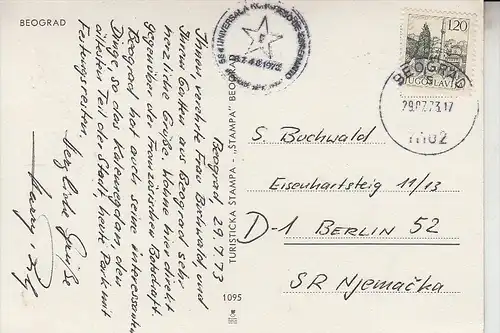 BEOGRAD
58-a UNIVERSALA KONGRESO DE ESPERANTO
28.7.-4.8.1973
1,20
BEOGRAD
5
JUGOSLAVIJA
29.07.73.17
11102
Beograd, 29.7.73
Ihnen, verehrte Frau Buchwald, und
Ihrem Gatten aus Beograd sehr
herzliche Grüße. Wohne hier direkt
gegenüber der französischen Botschaft.
Beograd hat auch seine interessanten
Dinge, so das Kalemegdan, den
ältesten Teil der Stadt, heute Park mit
Festungsresten.
Herzliche Grüße
TURISTICKA ŠTAMPA - „ŠTAMPA" BEOGRAD
1095
S. Buchwald
Eisenhartsteig 11/13
D-1 BERLIN 52
SR Njemačka